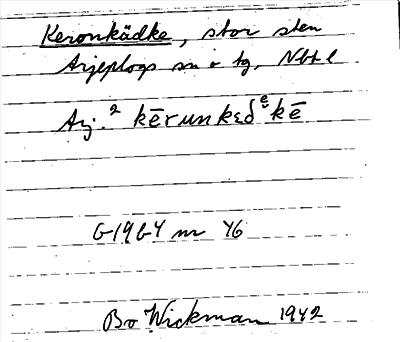 Keronkädke, stor sten
Arjeplogs sn o tg, Nbtl
Arj.² kērunkεδᵉkē
G1964 nr 46
Bo Wickman 1942